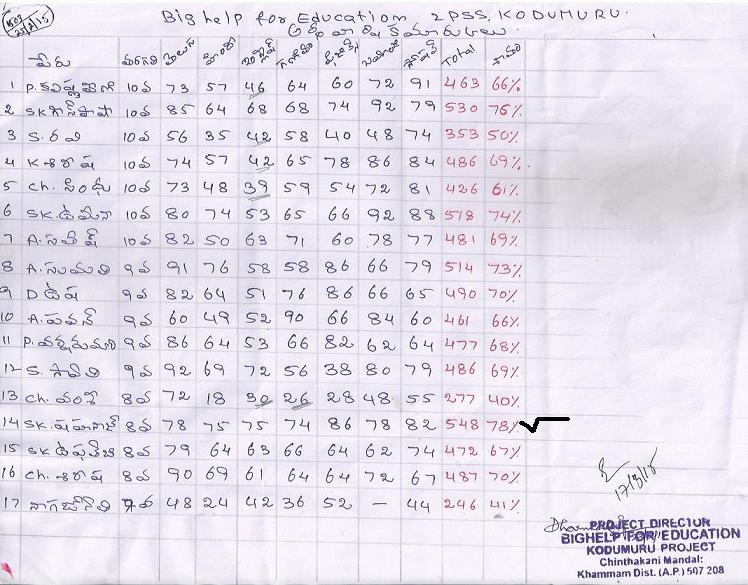 Big help for Education 2 PSS, KODUMURU.
పేరు తరగతి తెలుగు హిందీ ఇంగ్లీష్ గణితం Total శాతం
1 P. 10వ 73 57 46 64 60 72 91 463 66%
2 SK 10వ 85 64 68 68 74 92 79 530 76%
3 S. రవి 10వ 56 35 42 58 40 48 74 353 50%
4 K శిరీష 10వ 74 57 42 65 78 86 84 486 69%
5 Ch. సింధు 10వ 73 48 39 59 54 72 81 426 61%
6 SK. 10వ 80 74 53 65 66 92 88 518 74%
7 A. సతీష్ 10వ 82 50 63 71 60 78 77 481 69%
8 A. సుమతి 9వ 91 76 58 58 86 66 79 514 73%
9 D ఉష 9వ 82 64 51 76 86 66 65 490 70%
10 A. పవన్ 9వ 60 49 52 90 66 84 60 461 66%
11 P. 9వ 86 64 53 66 82 62 64 477 68%
12 S. 9వ 92 69 72 56 38 80 79 486 69%
13 Ch. వంశీ 8వ 72 18 30 26 28 48 55 277 40%
14 SK. 8వ 78 75 75 74 86 78 82 548 78% √
15 SK 8వ 79 64 63 66 64 62 74 472 67%
16 Ch. శిరీష 8వ 90 69 61 64 64 72 67 487 70%
17 7వ 48 24 42 36 52 - 44 246 41%
17/3/15
PROJECT DIRECTOR
BIGHELP FOR EDUCATION
KODUMURU PROJECT
Chinthakani Mandal:
Khammam Dist. (A.P.) 507 208